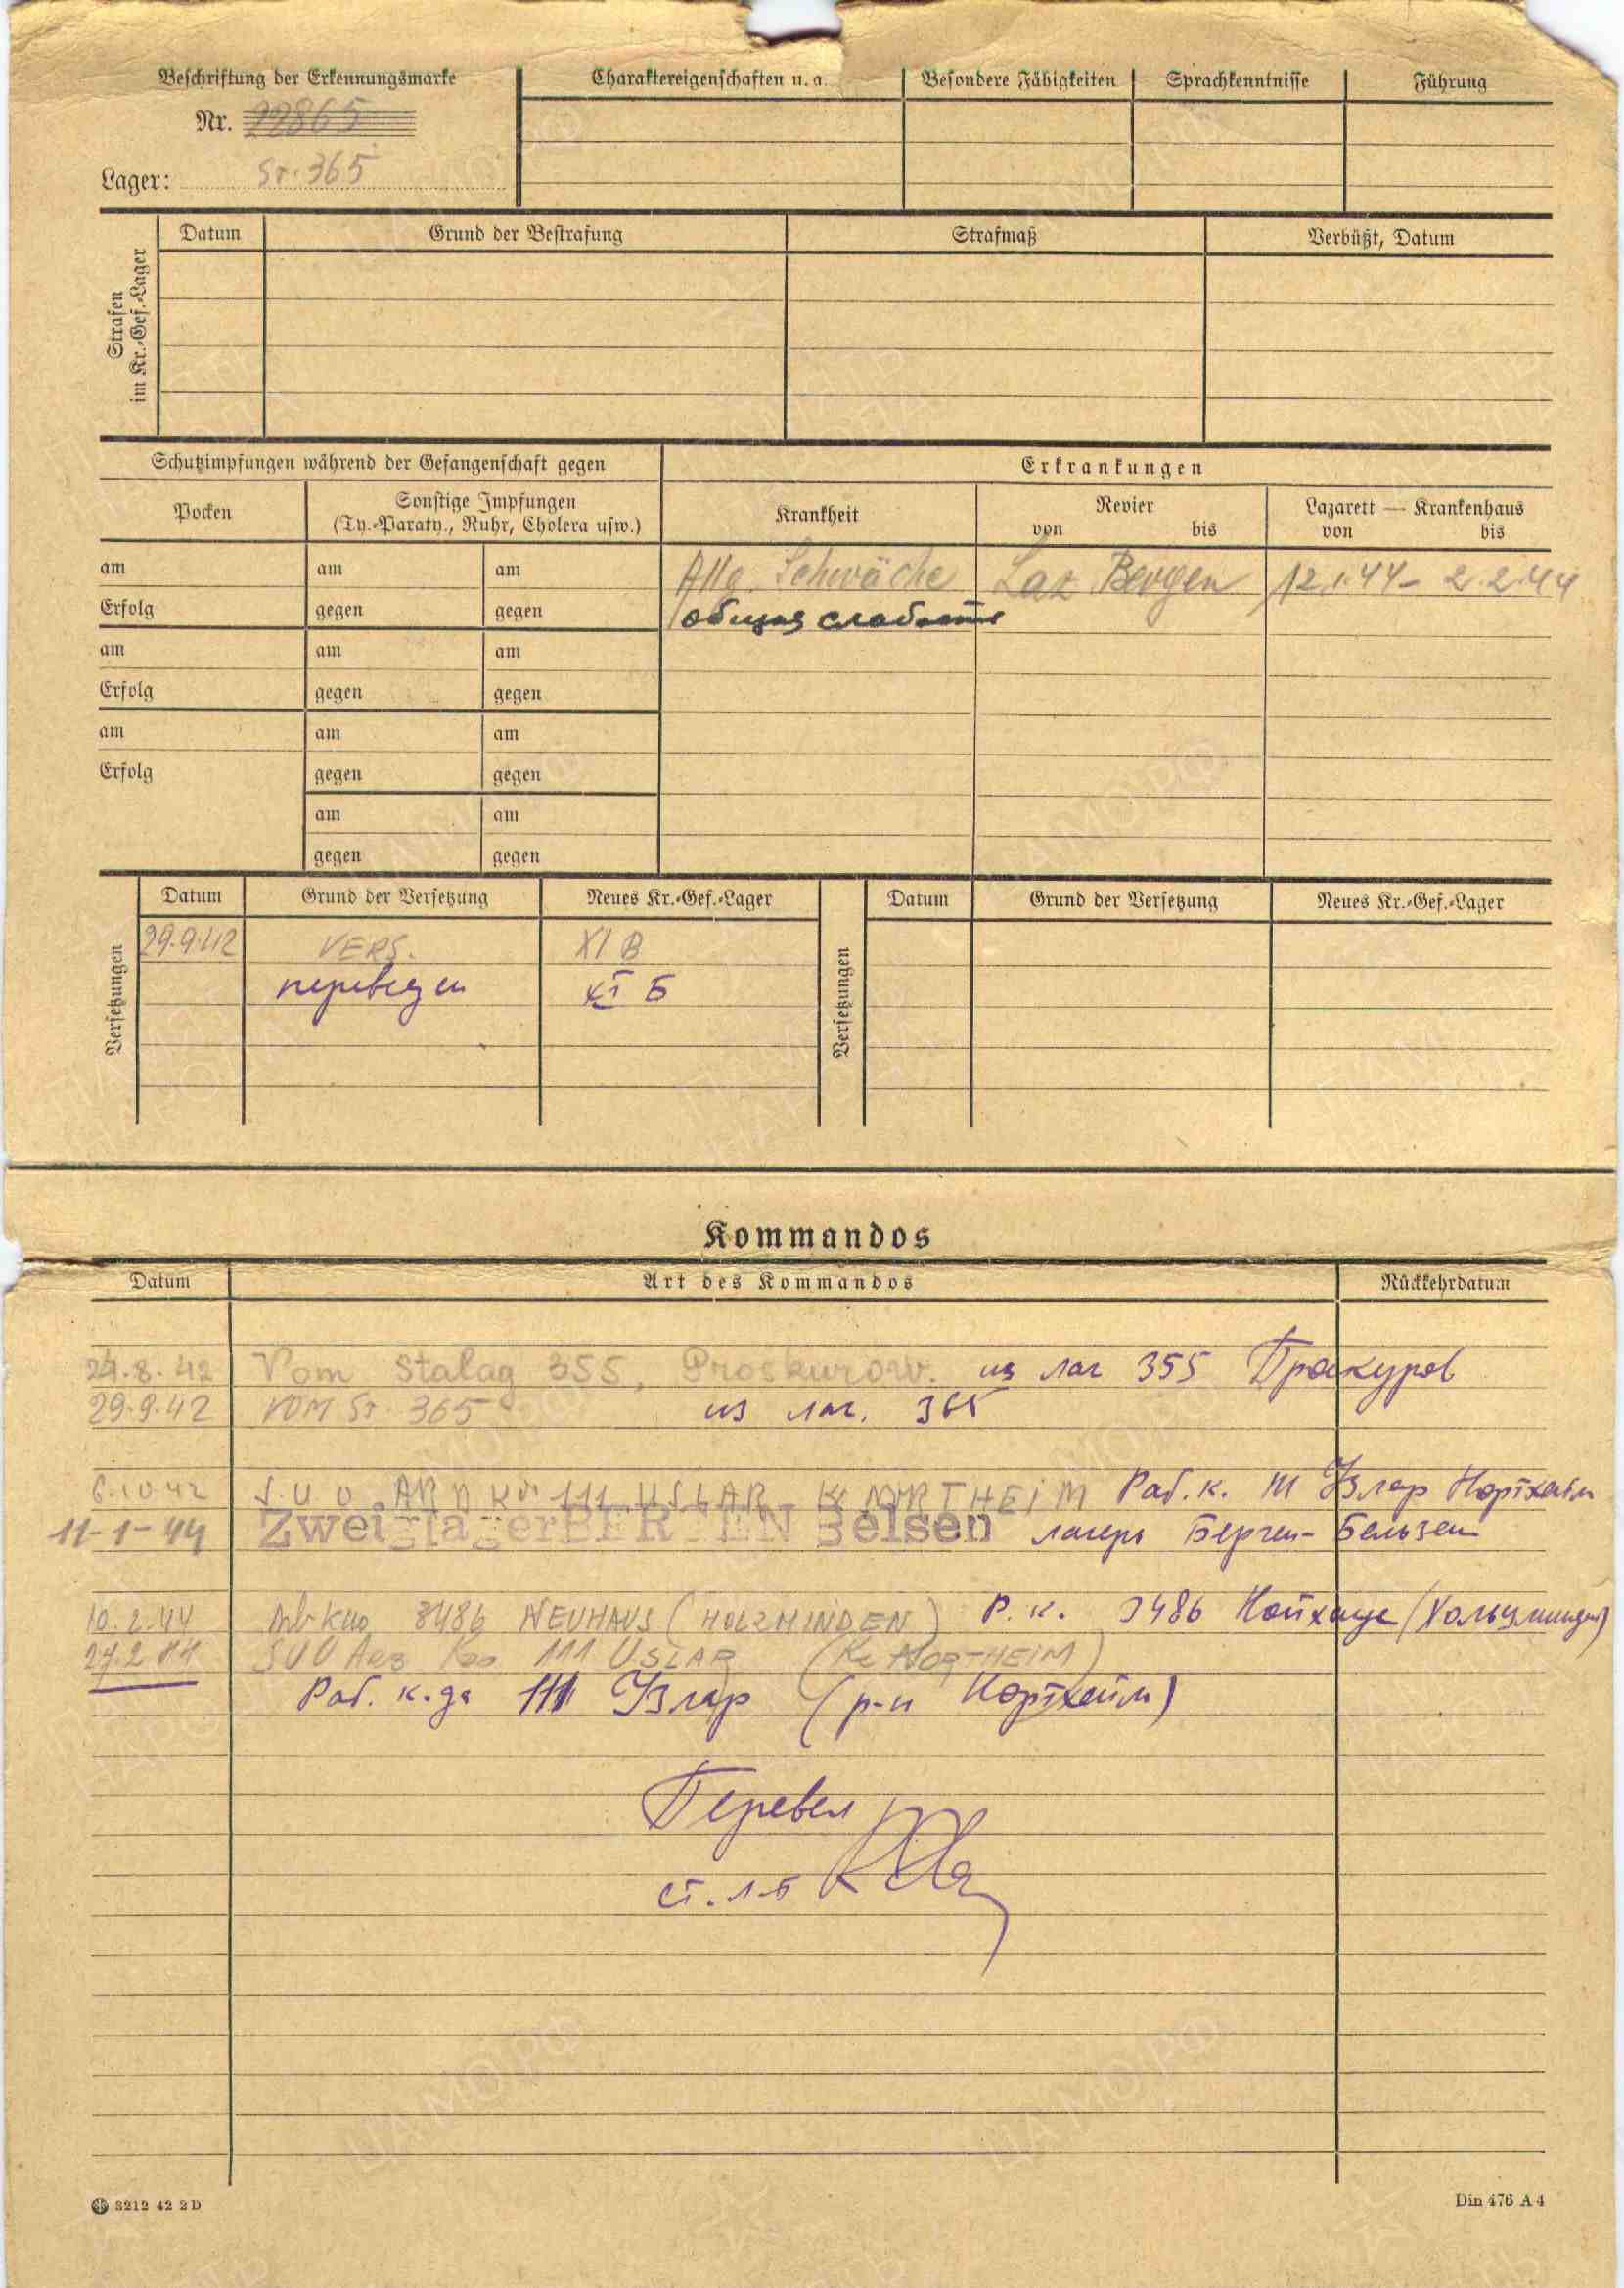 Beschriftung der Erkennungsmarke
Nr. 22865
Lager: St. 365
Charaktereigenschaften u. a.
Besondere Fähigkeiten
Sprachkenntnisse
Führung
Strafen
im Kr.-Gef.-Lager
Datum
Grund der Bestrafung
Strafmaß
Verbüßt, Datum
Schutzimpfungen während der Gefangenschaft gegen
Erkrankungen
Pocken
Sonstige Impfungen
(Ty.-Paraty., Ruhr, Cholera usw.)
Krankheit
Revier
von bis
Lazarett — Krankenhaus
von bis
am am am
Allg. Schwäche Laz. Bergen 12.1.44 - 2.2.44
Erfolg gegen gegen
общая слабость
am am am
Erfolg gegen gegen
am am am
Erfolg gegen gegen
am am
gegen gegen
Versetzungen
Datum
Grund der Versetzung
Neues Kr.-Gef.-Lager
29.9.42 VERS. XI B
переведен XI Б
Versetzungen
Datum
Grund der Versetzung
Neues Kr.-Gef.-Lager
Kommandos
Datum
Art des Kommandos
Rückkehrdatum
24.8.42 Vom Stalag 355, Proskurow. из лаг 355 Проскуров
29.9.42 VOM St. 365 из лаг. 365
6.10.42 111 USLAR Kr NORTHEIM Раб. к. 111 Узлар Нортхейм
11-1-44 Zweiglager BERGEN Belsen лагерь Берген-Бельзен
10.2.44 Arb Kdo 3486 NEUHAUS (HOLZMINDEN) Р. к. 3486 Нойхаус (Хольцминден)
27.2.44 SUU Arb Kdo 111 USLAR (Kr NORTHEIM)
Раб. к-да 111 Узлар (р-н Нортхейм)
Перевел
ст. л-т
3212 42 2D
Din 476 A 4